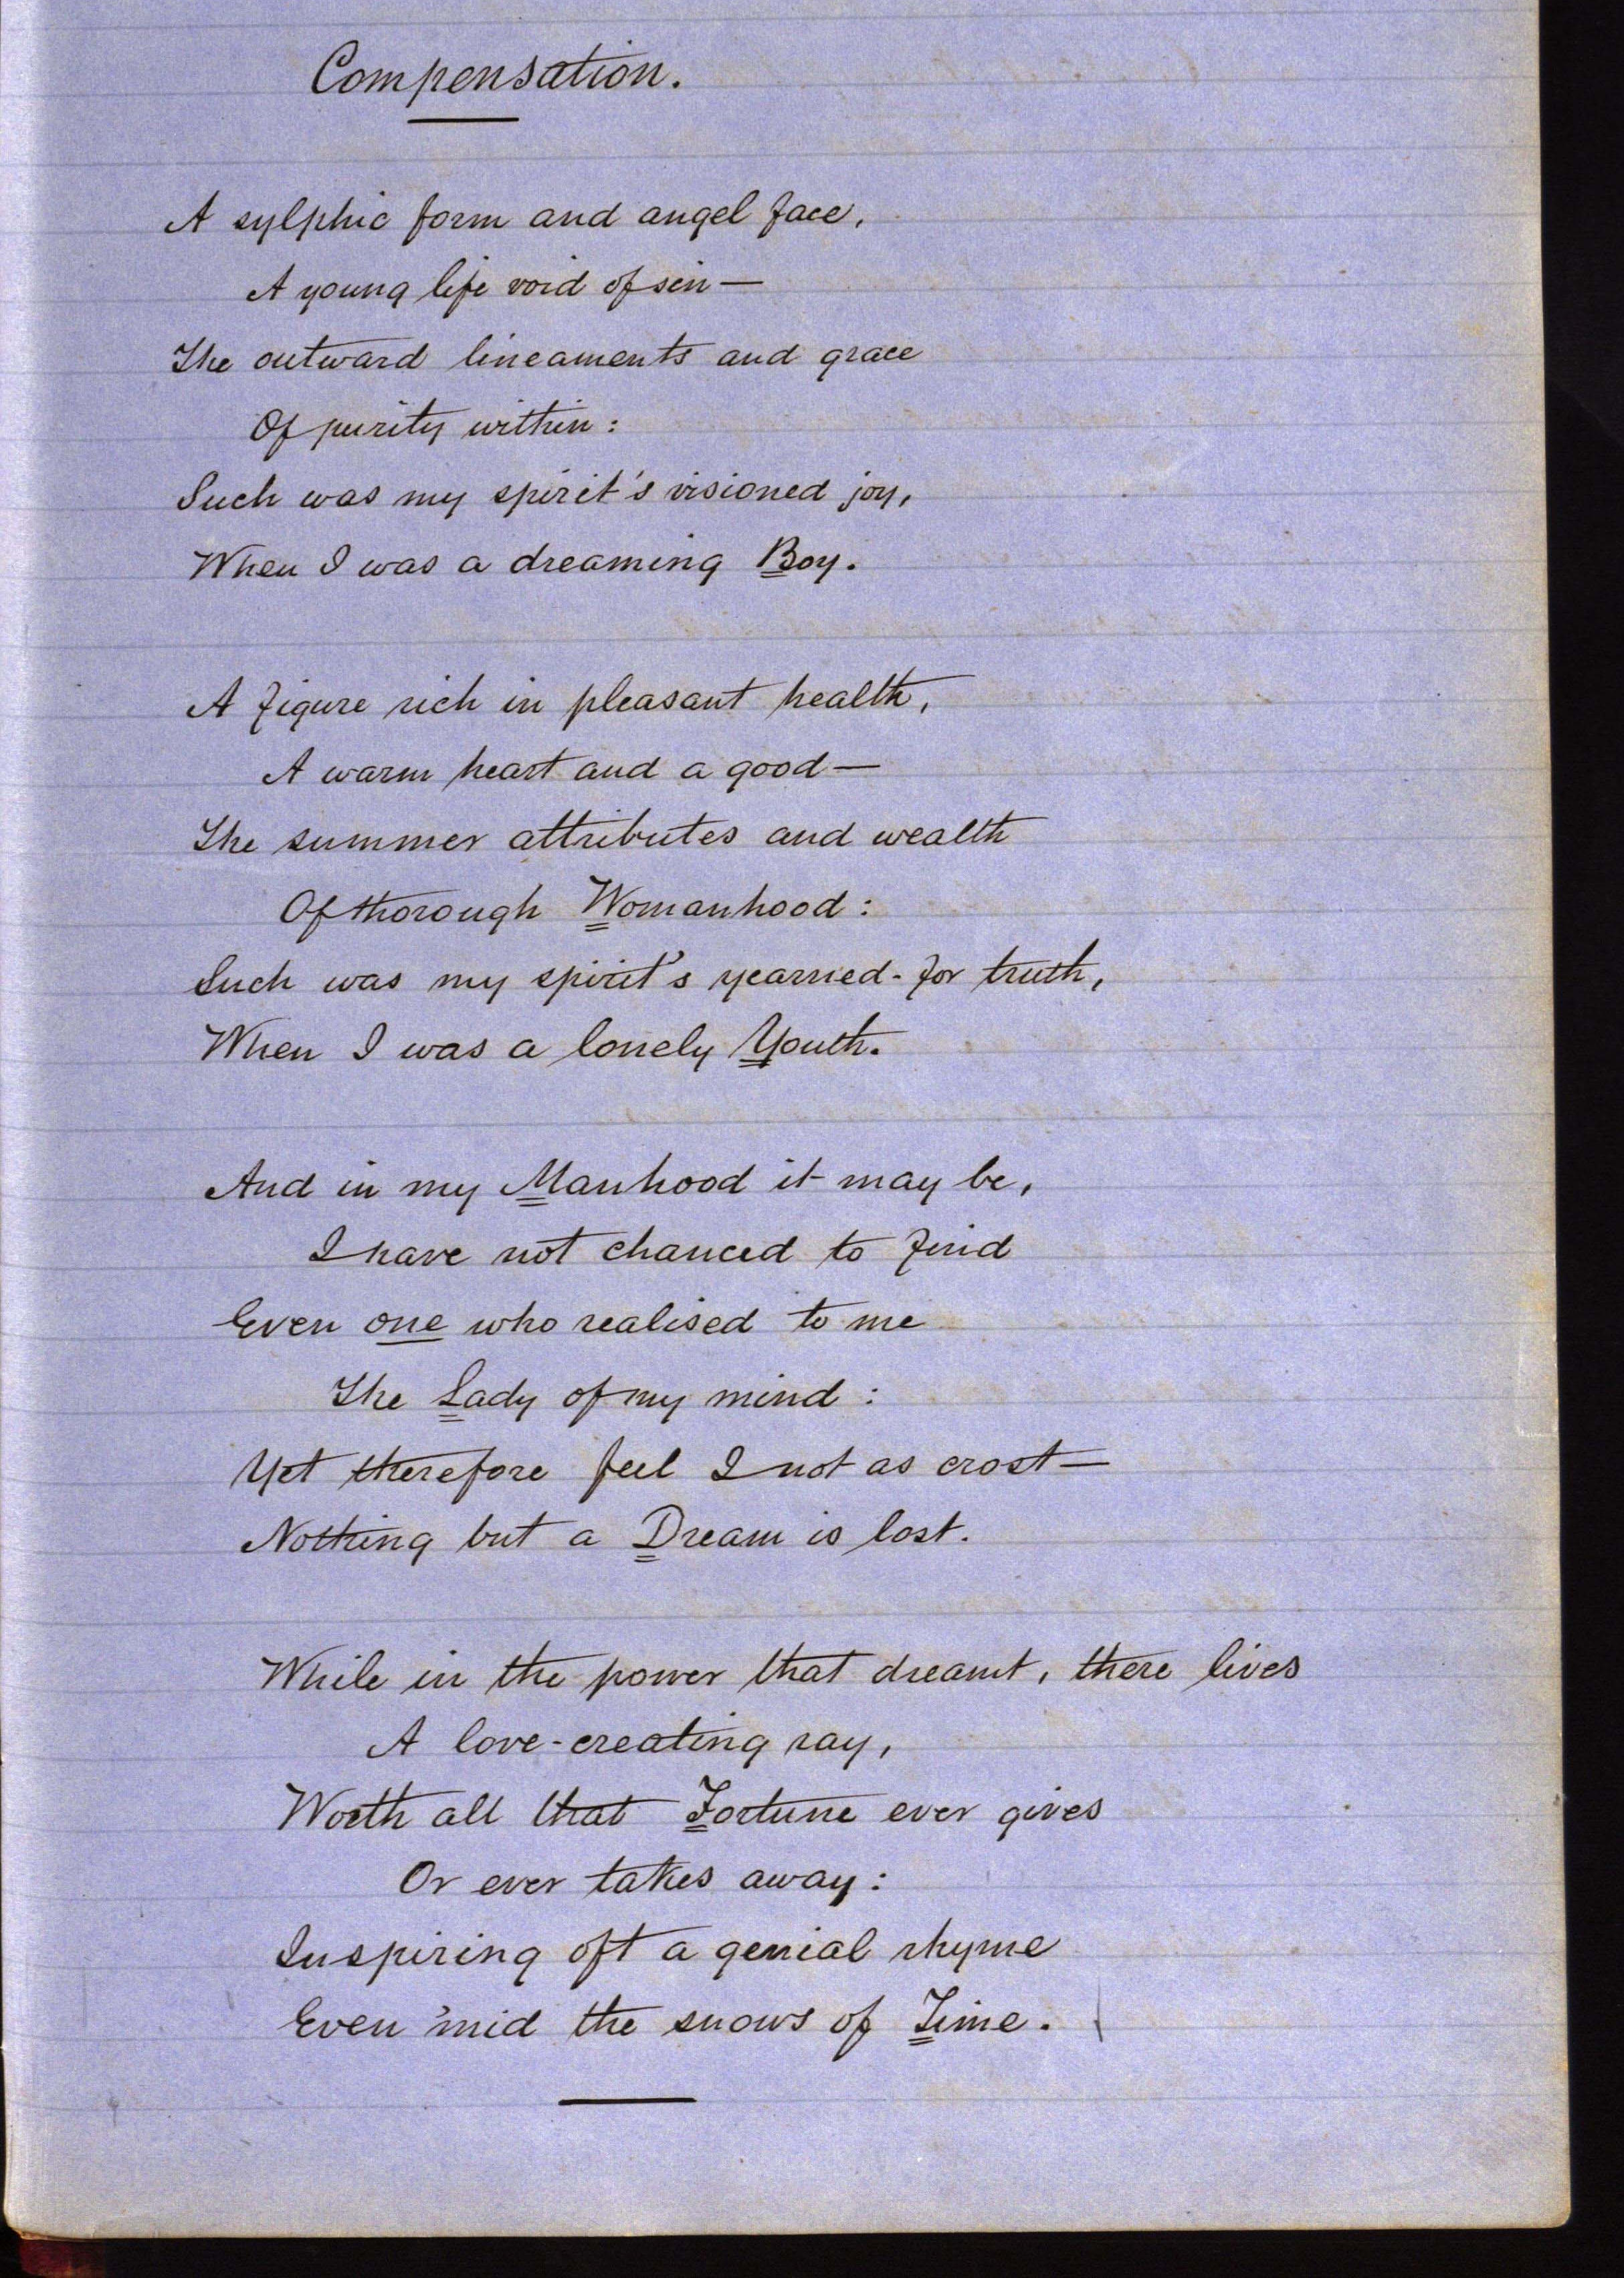 Compensation.
A sylphic form and angel face,
A young life void of sin—
The outward lineaments and grace
Of purity within:
Such was my spirit's visioned joy,
When I was a dreaming Boy.
A figure rich in pleasant health,
A warm heart and a good—
The summer attributes and wealth
Of thorough Womanhood:
Such was my spirit's yearned-for truth,
When I was a lonely Youth.
And in my Manhood it may be,
I have not chanced to find
Even one who realised to me
The Lady of my mind:
Yet therefore feel I not as crost—
Nothing but a Dream is lost.
While in the power that dreamt, there lives
A love-creating ray,
Worth all that Fortune ever gives
Or ever takes away:
Inspiring oft a genial rhyme
Even 'mid the snows of Time.